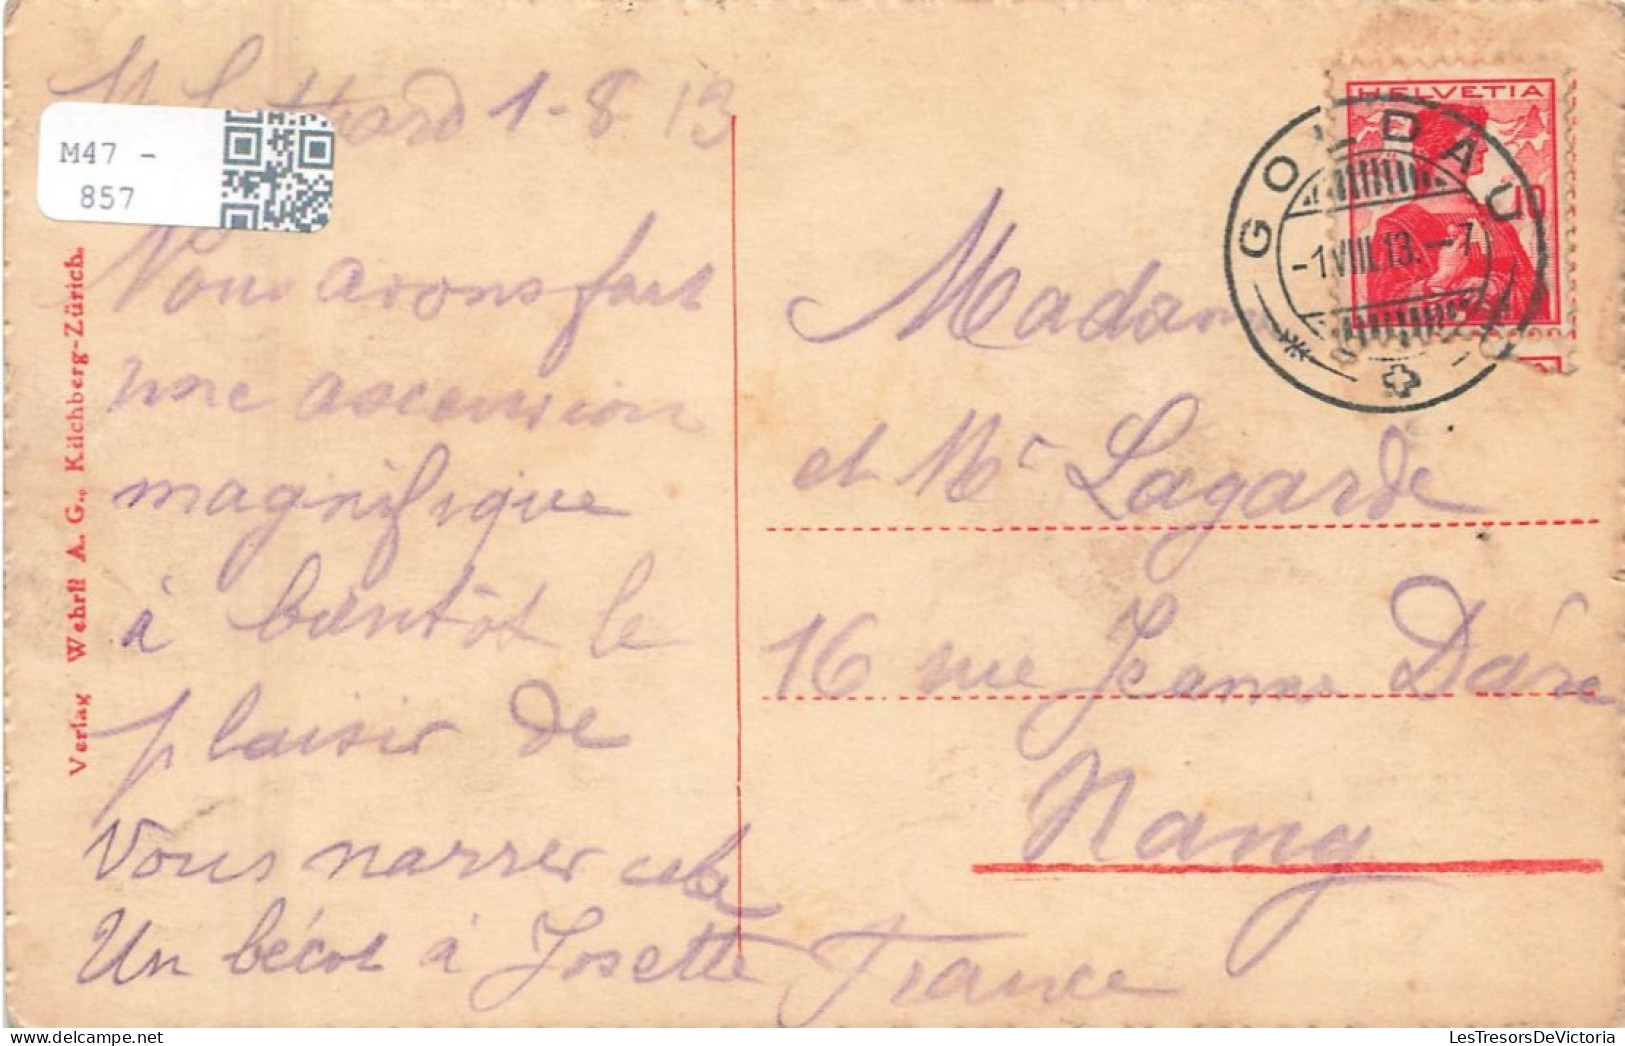 1-8 13
M47 -
857
Nous avons fait
une ascension
magnifique
à bientôt le
plaisir de
vous narrer cela
Un bécot à Josette
Verlag Wehrli A. G., Kilchberg-Zürich.
HELVETIA
10
GOLDAU
-1.VIII.13.-7
Madame
et Mr Lagarde
16 rue Jeanne Darc
Nancy
France
LesTresorsDeVictoria